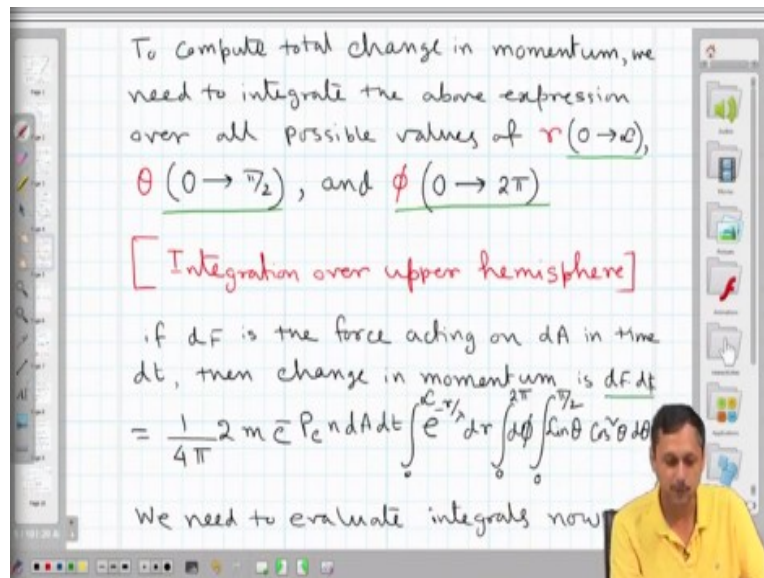 To compute total change in momentum, we
need to integrate the above expression
over all possible values of r (0 → ∝),
θ (0 → π/2), and ϕ (0 → 2π)
[Integration over upper hemisphere]
if dF is the force acting on dA in time
dt, then change in momentum is dF.dt
= 1/4π 2 m c̄ Pc n dA dt ∫₀^∝ e^(-r/λ) dr ∫₀^2π dϕ ∫₀^π/2 Sinθ Cos²θ dθ
We need to evaluate integrals now